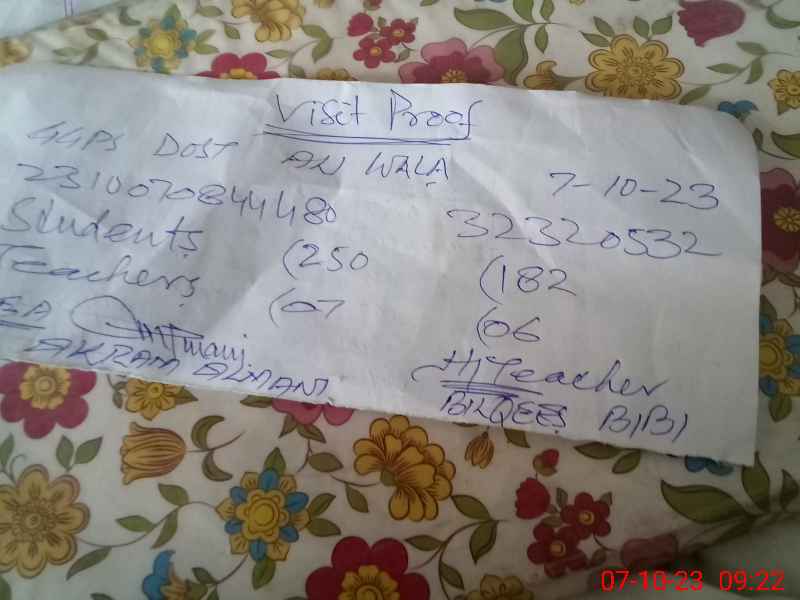 Visit Proof
GGPS DOST AN WALA 7-10-23
2310070844480 32320532
Students (250 (182
Teachers (07 (06
EA H/Teacher
AKRAM ALMANI BILQEES BIBI
07-10-23 09:22